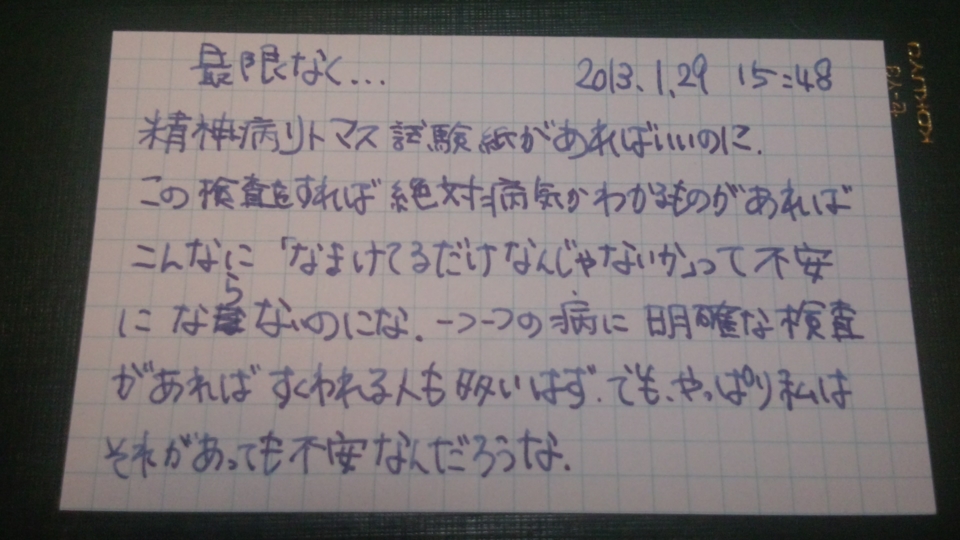 最限なく... 2013.1.29 15:48
精神病リトマス試験紙があればいいのに.
この検査をすれば絶対病気がわかるものがあれば
こんなに「なまけてるだけなんじゃないか」って不安
にならないのにな. 一つ一つの病に明確な検査
があればすくわれる人も多いはず. でも、やっぱり私は
それがあっても不安なんだろうな.
KOKUYO